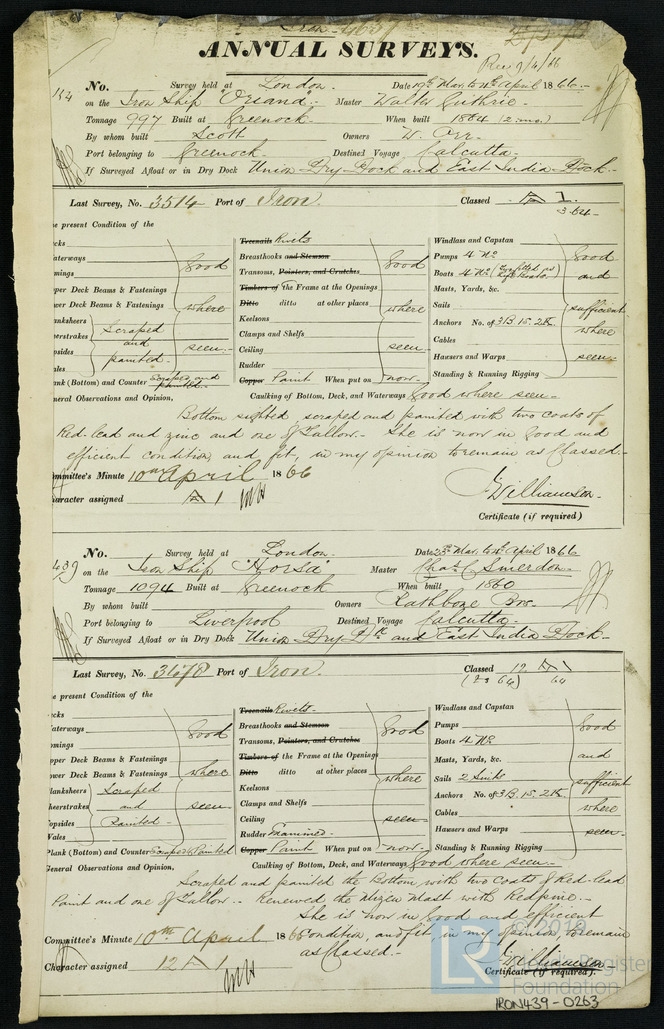 Iron 4637
ANNUAL SURVEYS.
Rec 9/4/66
No. Survey held at London. Date 19th Mar. to 4th April 1866
on the Iron Ship "Oriana" Master Walter Guthrie
Tonnage 997 Built at Greenock. When built 1864 (2 mo.)
By whom built Scott Owners W. Orr.
Port belonging to Greenock. Destined Voyage Calcutta.
If Surveyed Afloat or in Dry Dock Union Dry-Dock and East India Dock.
Last Survey, No. 3514 Port of Iron. Classed A 1.
3-64
e present Condition of the
cks
aterways
mings
pper Deck Beams & Fastenings
wer Deck Beams & Fastenings
anksheers
eerstrakes
psides
ales
good where seen
Scraped and painted.
ank (Bottom) and Counter Scraped and painted.
neral Observations and Opinion,
Treenails Rivets
Breasthooks and Stemson
Transoms, Pointers, and Crutches
Timbers of the Frame at the Openings
Ditto ditto at other places
Keelsons
Clamps and Shelfs
Ceiling
Rudder
good where seen
Copper Paint When put on now.
Caulking of Bottom, Deck, and Waterways Good where seen
Windlass and Capstan
Pumps 4 No
Boats 4 No
Masts, Yards, &c.
Sails
Anchors No. of 3B. 1S. 2K.
Cables
Hawsers and Warps
Standing & Running Rigging
good and sufficient where seen
Bottom sighted scraped and painted with two coats of
Red-lead and zinc and one of Tallow. She is now in good and
efficient condition and fit, in my opinion to remain as Classed.
ommittee's Minute 10th April 1866
haracter assigned A 1
J. Williamson.
Certificate (if required)
439
No. Survey held at London. Date 23d Mar. to 4th April 1866
on the Iron Ship 'Horsa' Master Chas. C. Smerdon.
Tonnage 1094 Built at Greenock When built 1860
By whom built Owners Rathbone Bro.
Port belonging to Liverpool Destined Voyage Calcutta.
If Surveyed Afloat or in Dry Dock Union Dry Dk and East India Dock.
Last Survey, No. 3678 Port of Iron. Classed 12 A 1
64
e present Condition of the
cks
aterways
mings
pper Deck Beams & Fastenings
ower Deck Beams & Fastenings
lanksheers
heerstrakes
opsides
Wales
Good where seen
Scraped and Painted.
Plank (Bottom) and Counter Scraped & Painted
General Observations and Opinion,
Treenails Rivets.
Breasthooks and Stemson
Transoms, Pointers, and Crutches
Timbers of the Frame at the Openings
Ditto ditto at other places
Keelsons
Clamps and Shelfs
Ceiling
Rudder Examined.
Good where seen
Copper Paint When put on now.
Caulking of Bottom, Deck, and Waterways Good where seen
Windlass and Capstan
Pumps
Boats 4 No
Masts, Yards, &c.
Sails 2 Suits
Anchors No. of 3B. 1S. 2K.
Cables
Hawsers and Warps
Standing & Running Rigging
Good and sufficient where seen.
Scraped and painted the Bottom with two coats of Red-lead
Paint and one of Tallow. Renewed the Mizen Mast with Redpine.
She is now in good and efficient
condition, and fit, in my opinion to remain
as Classed.
Committee's Minute 10th April 1866
Character assigned 12 A 1
J. Williamson.
Certificate (if required).
© 2019
LR
Lloyd's Register
Foundation
IRON439-0263